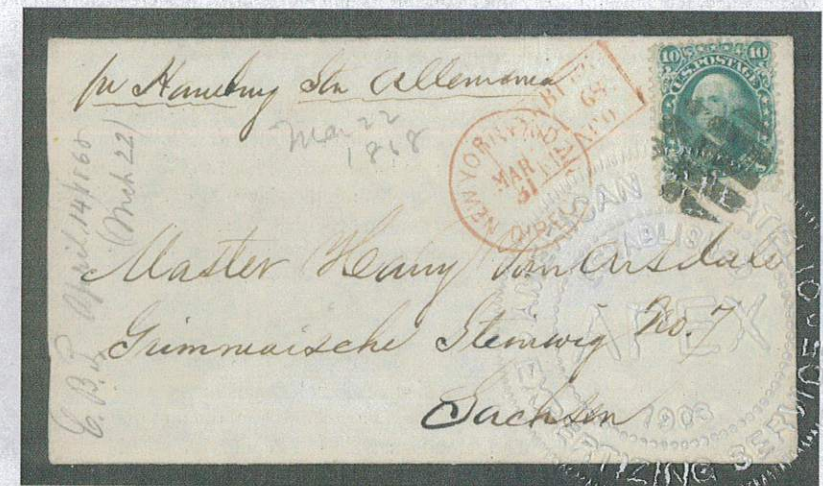 pr Hamburg Str Allemania
Mar 22
1868
NEW YORK PAID ALL DIRECT
MAR
31
68
10 10
U.S. POSTAGE
E.P.L. April 14/1868
(Mch 22)
Master Henry VanArsdale
Grimmaische Steinwig No. 7
Sachsen
APEX
1903
EXPERTIZING SERVICE